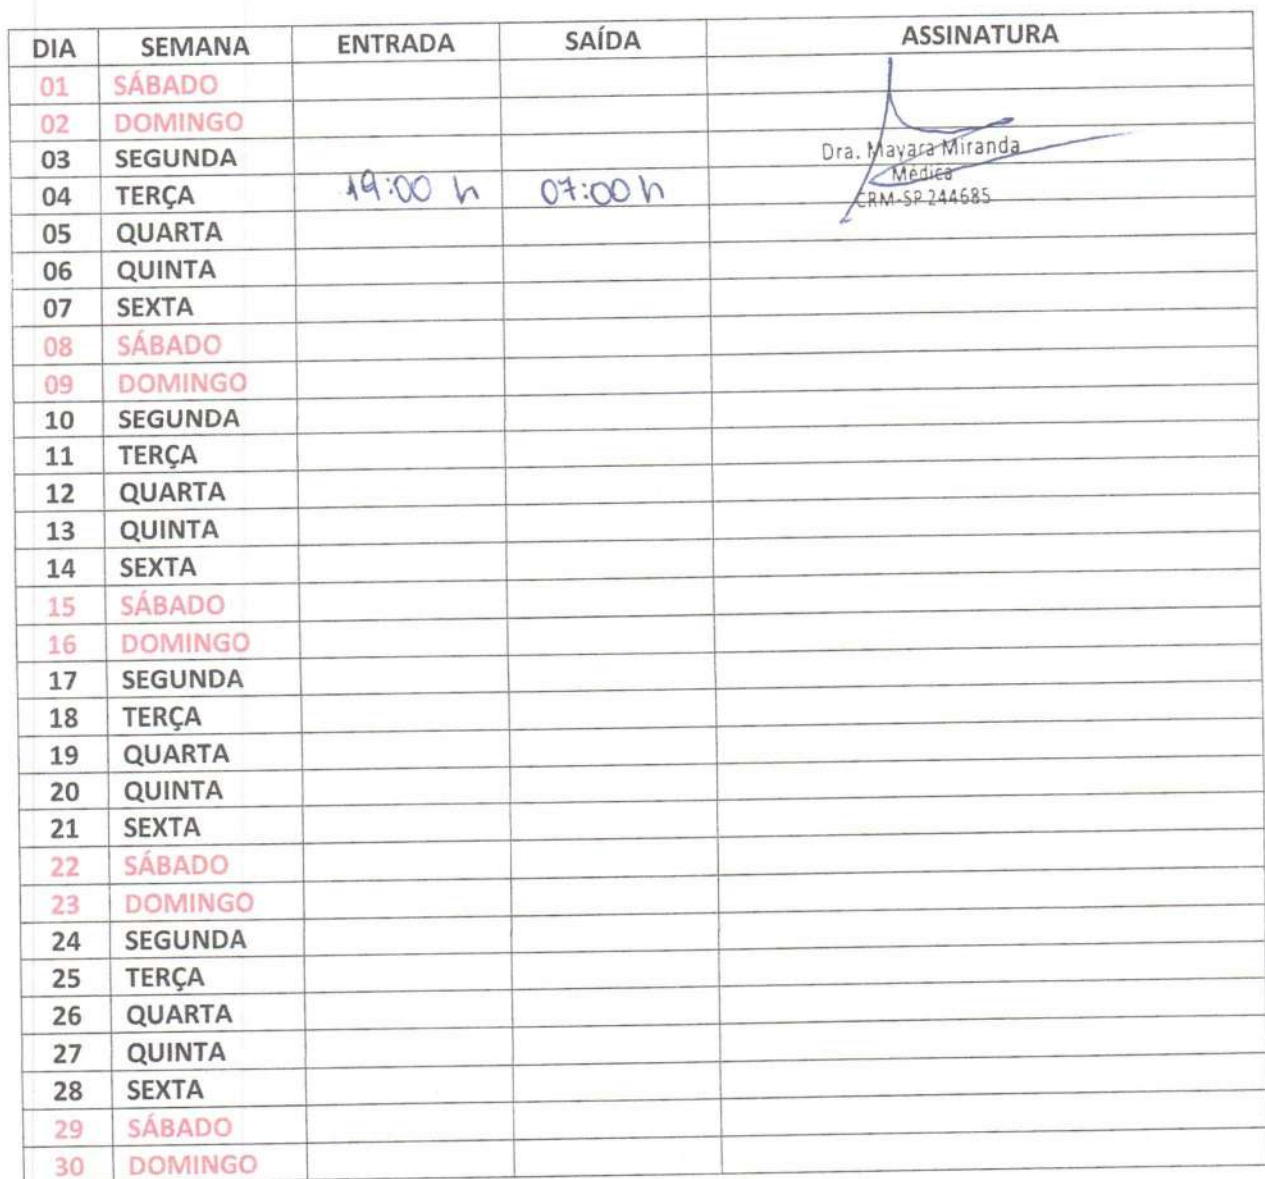 DIA SEMANA ENTRADA SAÍDA ASSINATURA
01 SÁBADO
02 DOMINGO
03 SEGUNDA Dra. Mayara Miranda
Médica
04 TERÇA 19:00 h 07:00 h CRM-SP 244685
05 QUARTA
06 QUINTA
07 SEXTA
08 SÁBADO
09 DOMINGO
10 SEGUNDA
11 TERÇA
12 QUARTA
13 QUINTA
14 SEXTA
15 SÁBADO
16 DOMINGO
17 SEGUNDA
18 TERÇA
19 QUARTA
20 QUINTA
21 SEXTA
22 SÁBADO
23 DOMINGO
24 SEGUNDA
25 TERÇA
26 QUARTA
27 QUINTA
28 SEXTA
29 SÁBADO
30 DOMINGO